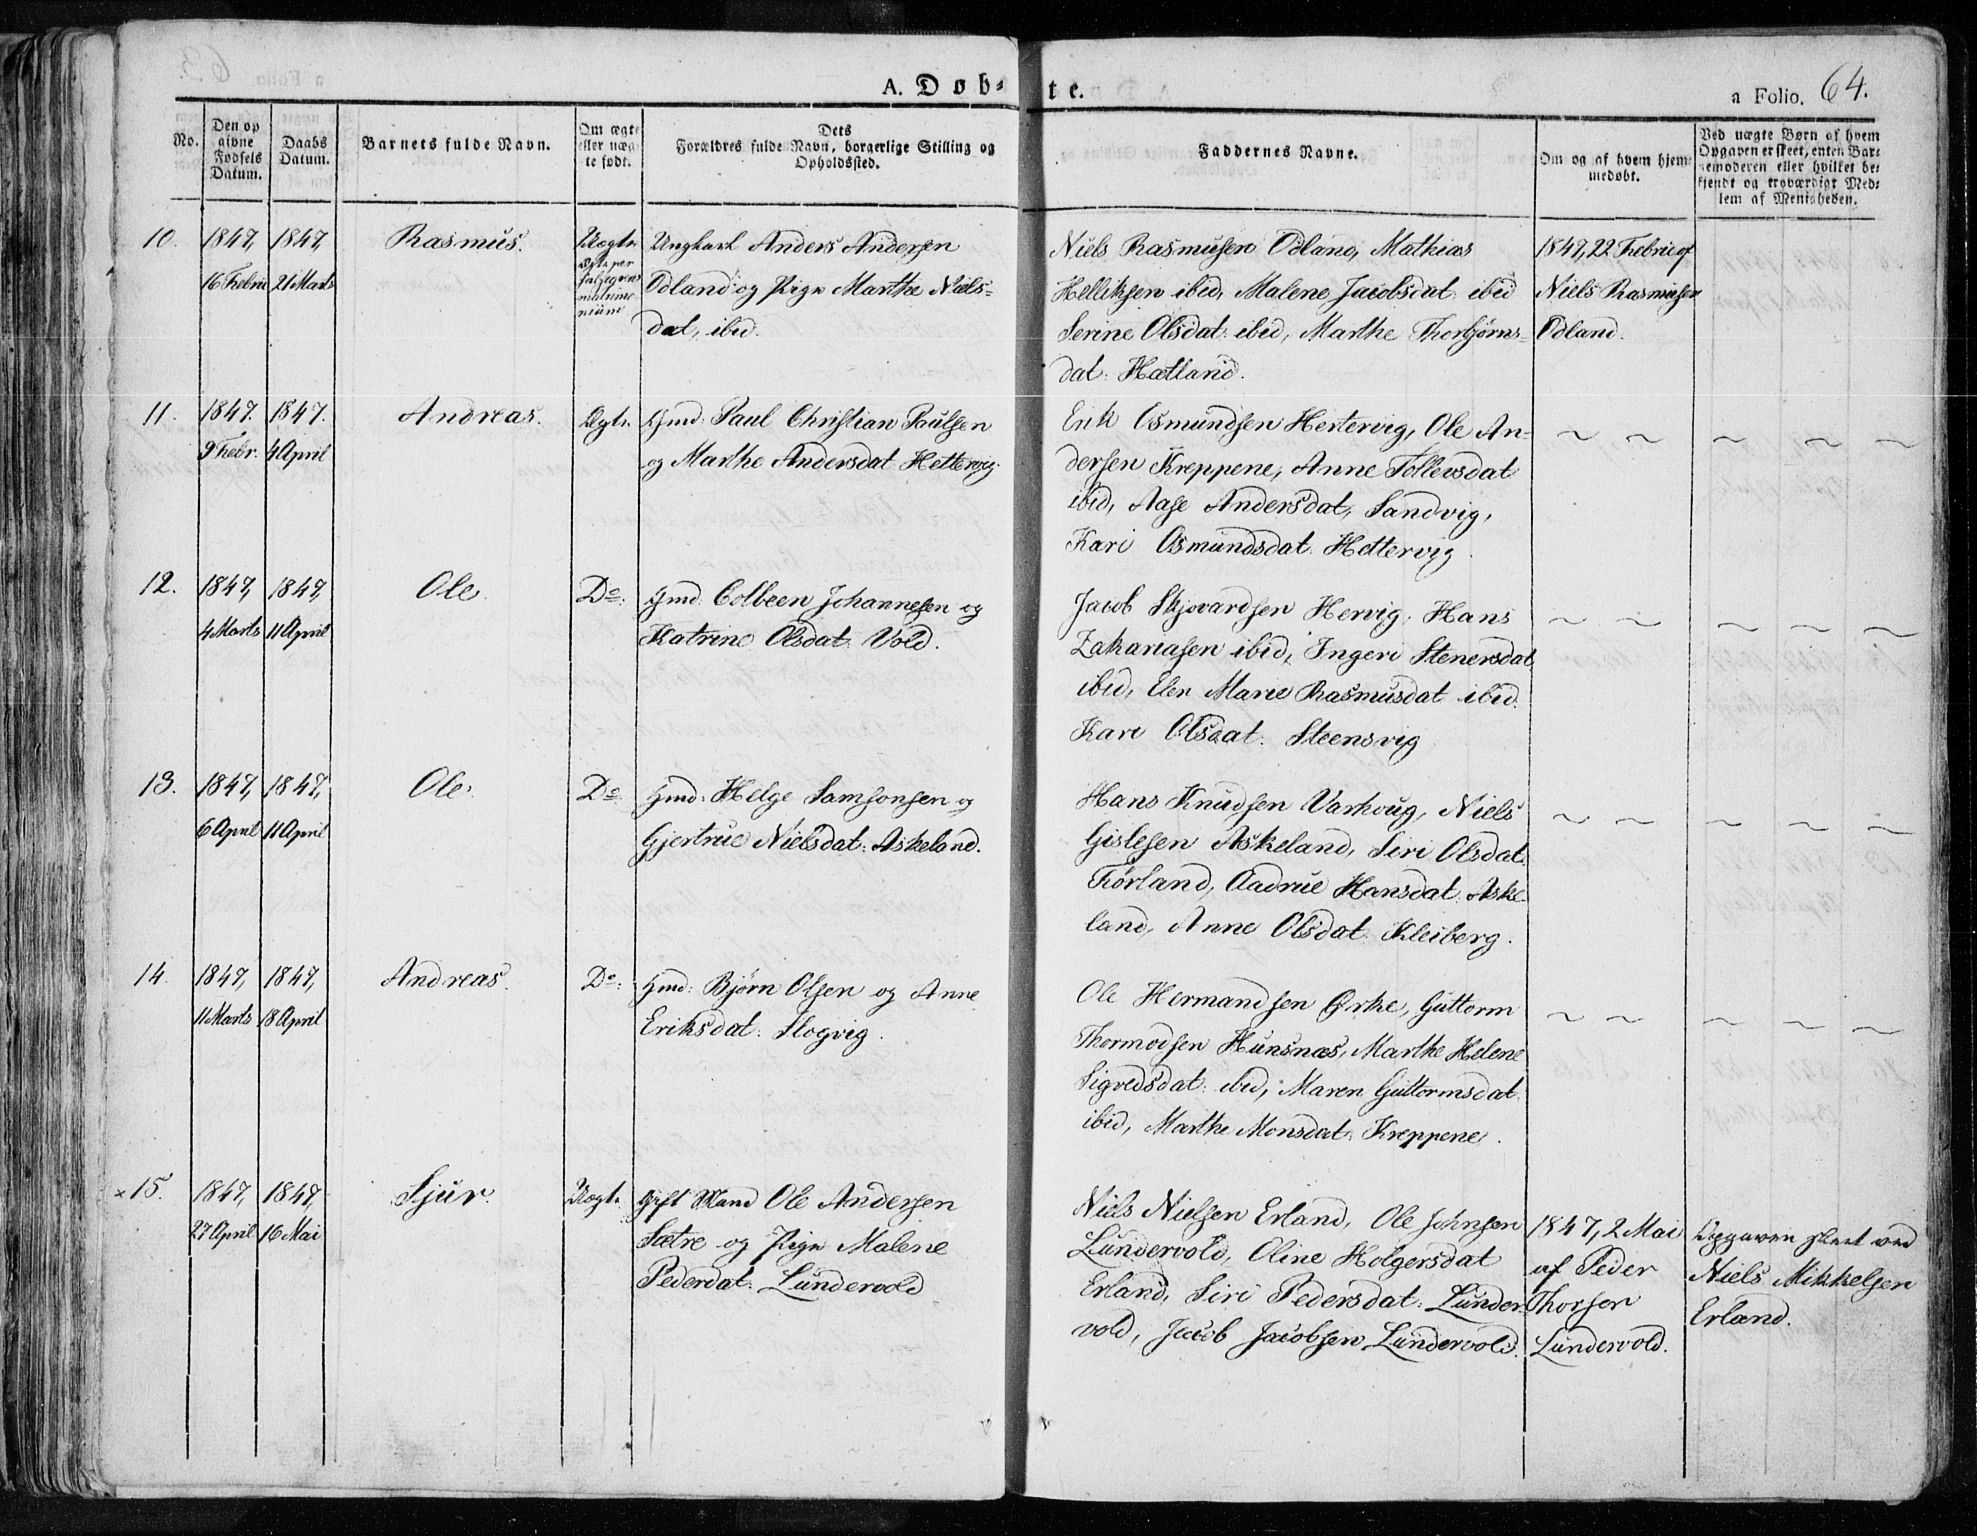 A. Døb-te.
a Folio. 64.
No.
Den op
givne
Fødsels
Datum.
Daabs
Datum.
Barnets fulde Navn.
Om ægte
eller uæg
te født.
Dets
Forældres fulde Navn, borgerlige Stilling og
Opholdssted.
Faddernes Navne.
Om og af hvem hjem-
medøbt.
Ved uægte Børn af hvem
Opgaven er skeet, enten Bar-
nemoderen eller hvilket be-
kjendt og troværdigt Med-
lem af Menigheden.
10. 1847, 1847,
16 Febrie 21 Marts
Rasmus.
Uægte
Ungkarl Anders Andersen
Ødland og Pige Marthe Niels-
dat, ibid.
Niels Rasmusen Ødland, Mathias
Helliksen ibid, Malene Jacobsdat. ibid
Serine Olsdat. ibid, Marthe Thorbjørns-
dat. Hætland.
1847, 22 Febrie af
Niels Rasmusen
Ødland.
11. 1847. 1847.
9 Febr. 4 April
Andreas.
Ægte
Gmd: Paul Christian Poulsen
og Marthe Andersdat Hettervig.
Erik Osmundsen Hertervig, Ole An-
dersen Kreppene, Anne Tollevsdat
ibid, Aase Andersdat, Sandvig,
Kari Osmundsdat. Hettervig.
12. 1847, 1847,
4 Marts 11 April
Ole.
Do:
Gmd: Colbeen Johannesen og
Katrine Olsdat. Vold.
Jacob Skjovardsen Hervig. Hans
Zakariasen ibid, Ingeri Stenersdat
ibid, Elen Marie Rasmusdat ibid.
Kari Olsdat. Steensvig
13. 1847, 1847,
6 April 11 April
Ole.
Do
Gmd: Helge Samsonsen og
Gjertrue Nielsdat: Askeland.
Hans Knudsen Varhoug, Niels
Gislesen Askeland, Siri Olsdat.
Førland, Aadrue Hansdat. Aske-
land, Anne Olsdat. Kleiberg.
14. 1847, 1847,
11 Marts 18 April
Andreas.
Do:
Gmd: Bjørn Olsen og Anne
Eriksdat. Slogvig.
Ole Hermandsen Ørke, Guttorm
Thormodsen Hunsnæs, Marthe Helene
Sigvedsdat. ibid, Maren Guttormsdat.
ibid, Marthe Monsdat. Kreppene.
x 15. 1847, 1847,
27 April 16 Mai
Sjur.
Uægte
Gift Mand Ole Andersen
Sætre og Pige Malene
Pederdat. Lundervold
Niels Nielsen Erland, Ole Johnsen
Lundervold, Oline Holgersdat
Erland, Siri Pedersdat. Lunder-
vold, Jacob Jacobsen Lundervold.
1847, 2 Mai
af Peder
Thorsen
Lundervold.
Opgaven skeet ved
Niels Mikkelsen
Erland.